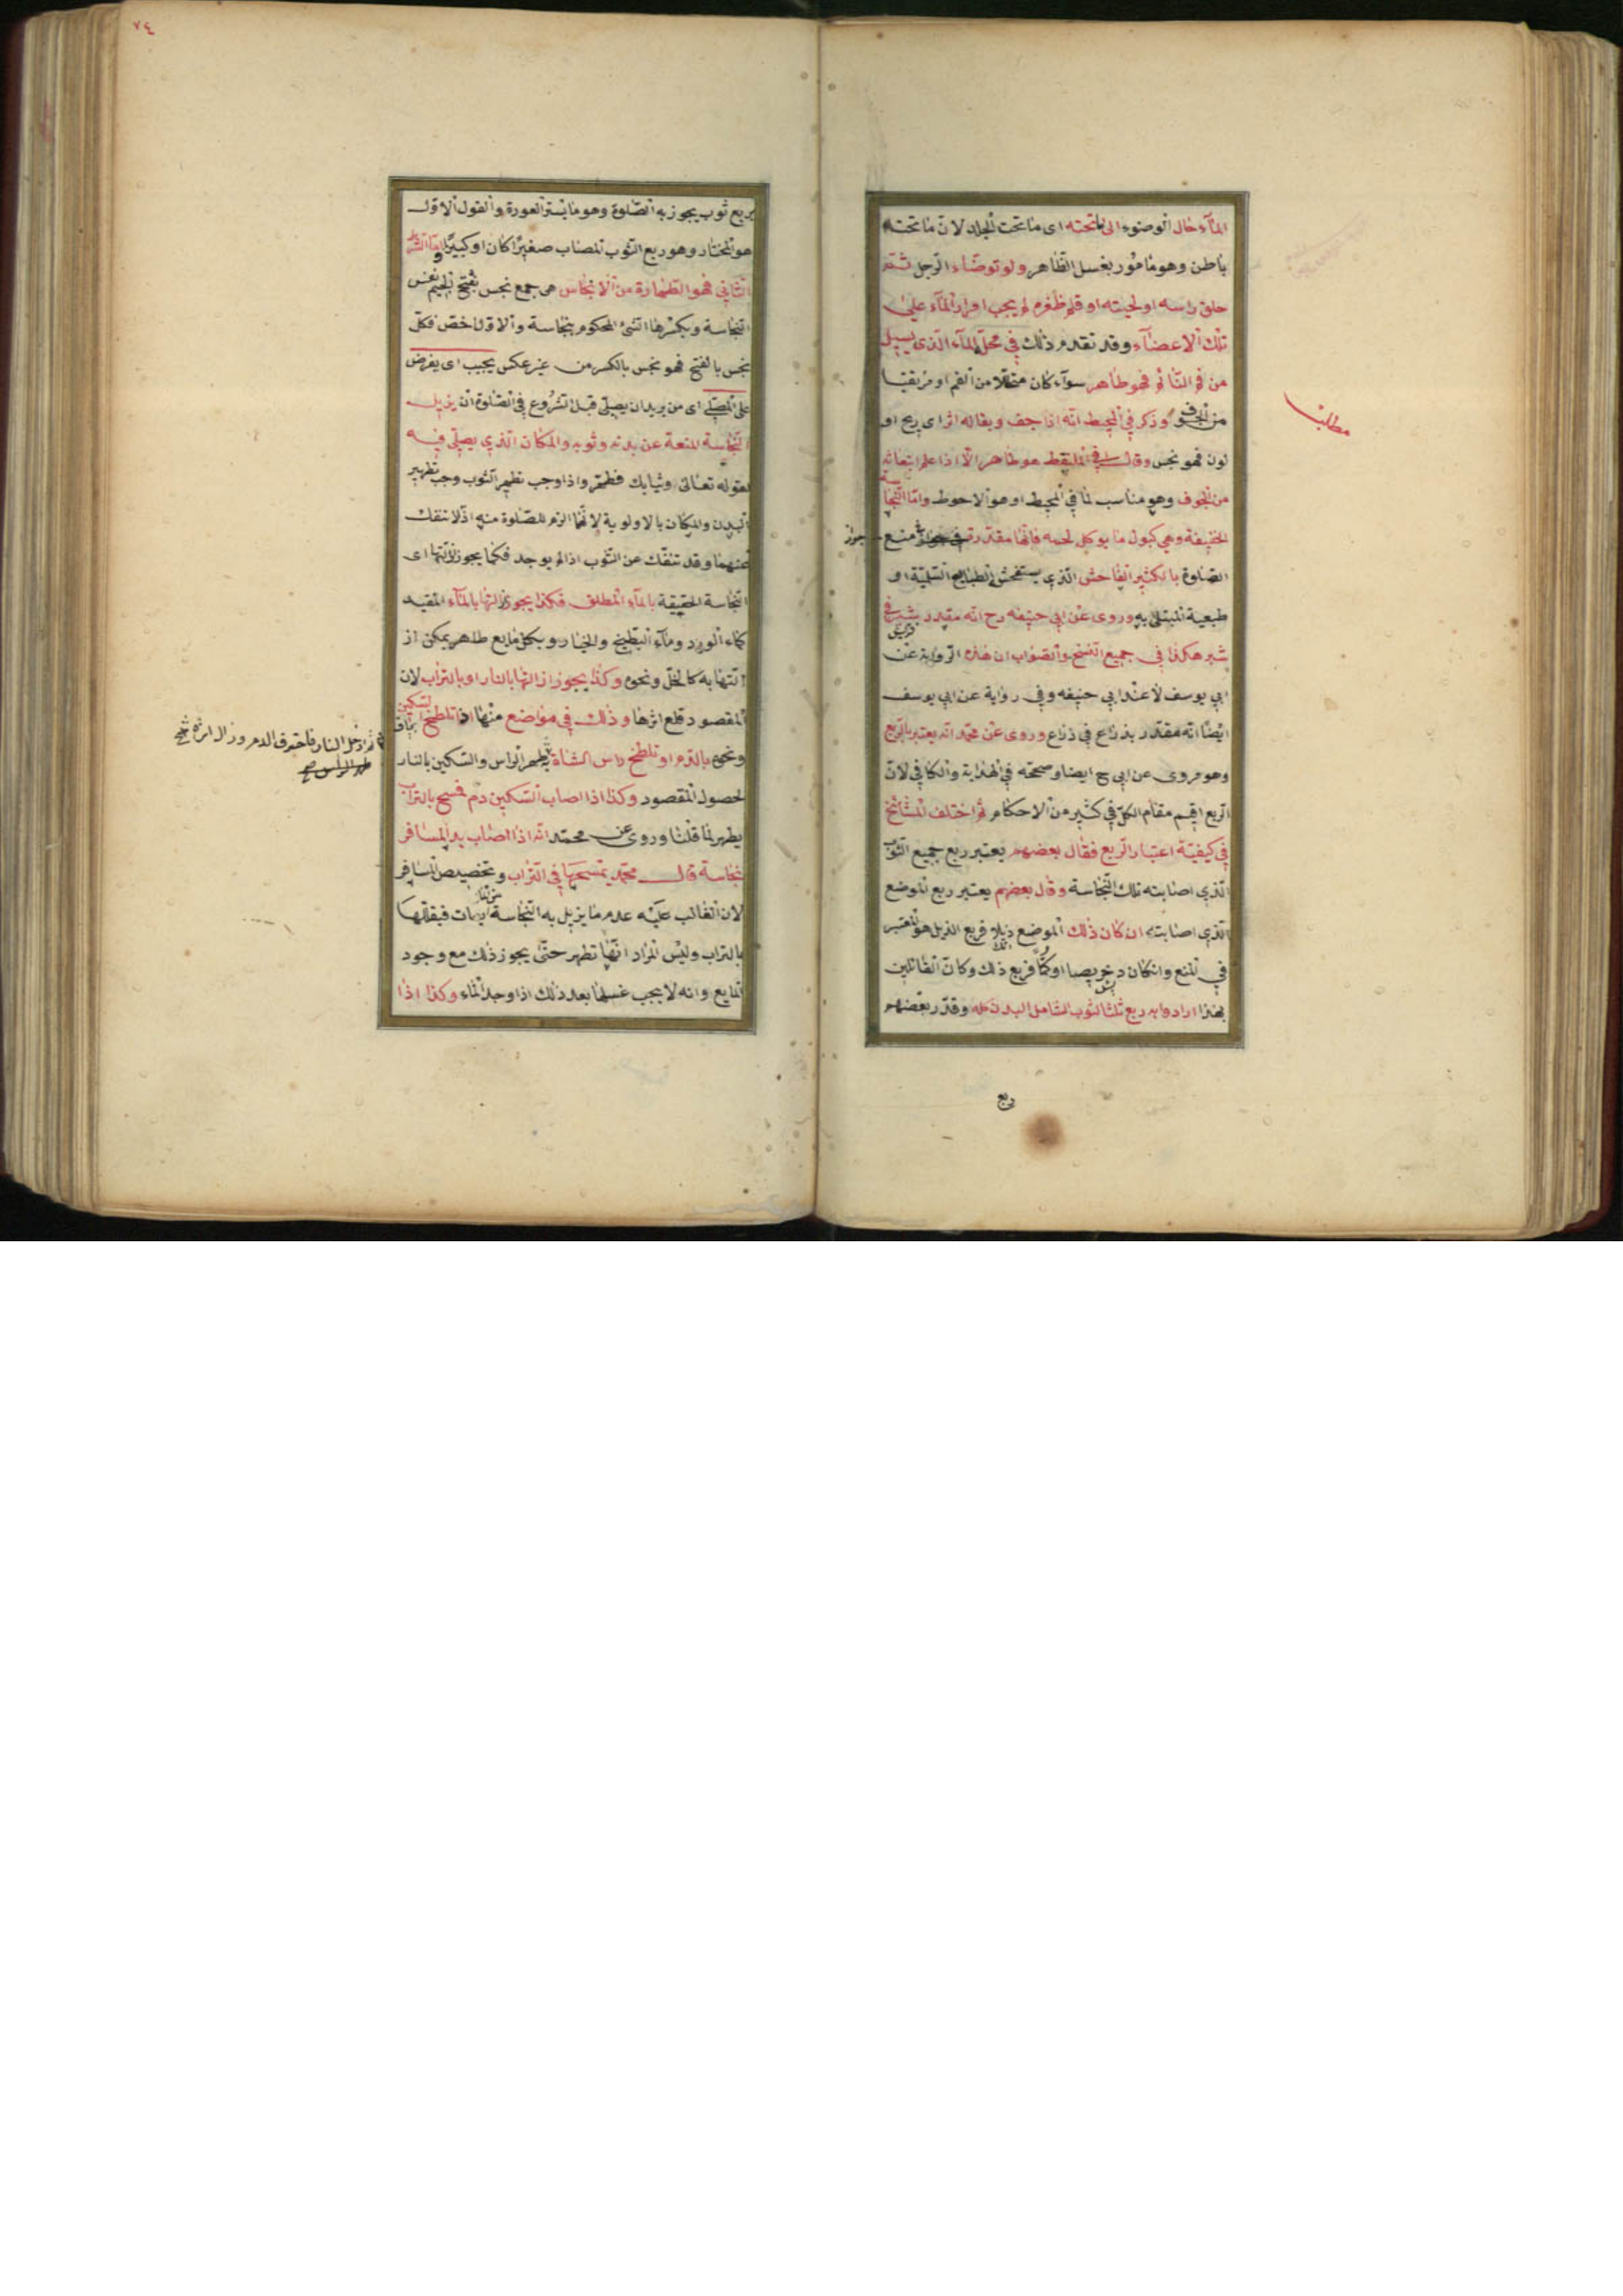 المآء حال الوضوء الى ما تحته اى ما تحت الجلد لان ما تحته
باطن وهو مأمور بغسل الظاهر ولو توضاء الرجل ثم
حلق راسه او لحيته او قلم ظفره لم يجب امرار المآء على
تلك الاعضآء وقد تقدم ذلك في محل المآء الذى يسيل
من فم النائم فهو طاهر سوآء كان متحللا من الفم او مرتقيا
من الجوف وذكر في المحيط انه اذا جف وبقاله اثر اى ريح او
لون فهو نجس وقال في الملتقط هو طاهر الا اذا علم انبعاثه
من الجوف وهو مناسب لما في المحيط او هو الاحوط واما النجاسة
الخفيفة وهي كبول ما يوكل لحمه فانها مقدرة منع جواز
الصلوة بالكثير الفاحش الذي يستفحش الطبايع السليمة او
طبيعة المبتلى به وروى عن ابي حنيفه رح انه مقدر بشبر في
شبر هكذا في جميع النسخ والصواب ان هذه الرواية عن
ابي يوسف لا عند ابي حنيفه وفي رواية عن ابي يوسف
ايضا انه مقدر بذراع في ذراع وروى عن محمد انه يعتبر بالربع
وهو مروى عن ابي ح ايضا وصححه في الهداية والكافي لان
الربع اقيم مقام الكل في كثير من الاحكام ثم اختلف المشائخ
في كيفية اعتبار الربع فقال بعضهم يعتبر ربع جميع الثوب
الذي اصابته تلك النجاسة وقال بعضهم يعتبر ربع الموضع
الذي اصابته ان كان ذلك الموضع ذيلا فربع الذيل هو المعتبر
في المنع وان كان دخريصا او كما فربع ذلك وكان القائلين
بهذا ارادوا به ربع الثوب الشامل للبدن كله وقدر بعضهم
ربع
مطلب
٧٤
بربع ثوب يجوز به الصلوة وهو ما يستر العورة والقول الاول
هو المختار وهو ربع الثوب المصاب صغيرا كان او كبيرا واما الشرط
الثاني فهو الطهارة من الانجاس هى جمع نجس بفتح الجيم نفس
النجاسة وبكسرها الشئ المحكوم بنجاسة والاول اخص فكل
نجس بالفتح فهو نجس بالكسر من غير عكس يجب اى يفرض
على المصلى اى من يريد ان يصلى قبل الشروع في الصلوة ان يزيل
النجاسة المانعة عن بدنه وثوبه والمكان الذي يصلى فيه
لقوله تعالى وثيابك فطهر واذا وجب تطهير الثوب وجب تطهير
البدن والمكان بالاولوية لانهما الزم للصلوة منه اذ لا تنفك
عنهما وقد تنفك عن الثوب اذا لم يوجد فكما يجوز ازالتها اى
النجاسة الحقيقة بالمآء المطلق فكذا يجوز ازالتها بالمآء المقيد
كماء الورد ومآء البطيخ والخيار وبكل مايع طاهر يمكن از
التها به كالخل ونحوه وكذا يجوز ازالتها بالنار او بالتراب لان
المقصود قلع اثرها وذلك في مواضع منها اذا تلطخ السكين
ونحوه بالدم او تلطخ راس الشاة يطهر الراس والسكين بالنار
لحصول المقصود وكذا اذا اصاب السكين دم فمسح بالتراب
يطهر لما قلنا وروى عن محمد انه اذا اصاب يد المسافر
نجاسة قال محمد يمسحها في التراب وتخصيص المسافر
لان الغالب عليه عدم ما يزيل به النجاسة من المايعات فيقللها
بالتراب وليس المراد انها تطهر حتى يجوز ذلك مع وجود
المايع وانه لا يجب غسلها بعد ذلك اذا وجد الماء وكذا اذا
ثم ادخل النار فاحترق الدم وزال اثره
طهر الراس